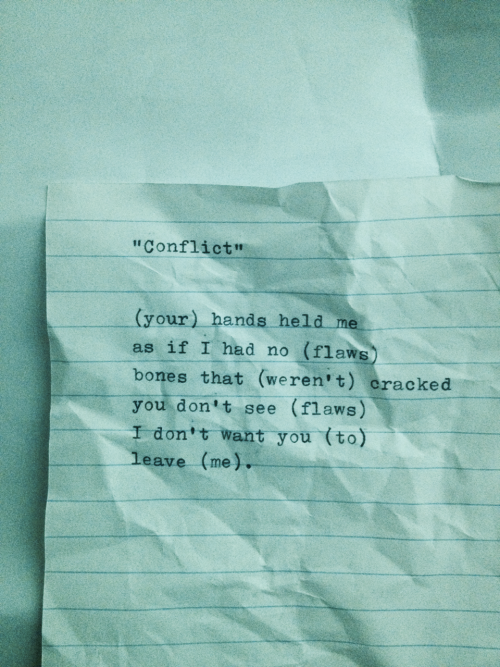 "Conflict"
(your) hands held me
as if I had no (flaws)
bones that (weren't) cracked
you don't see (flaws)
I don't want you (to)
leave (me).